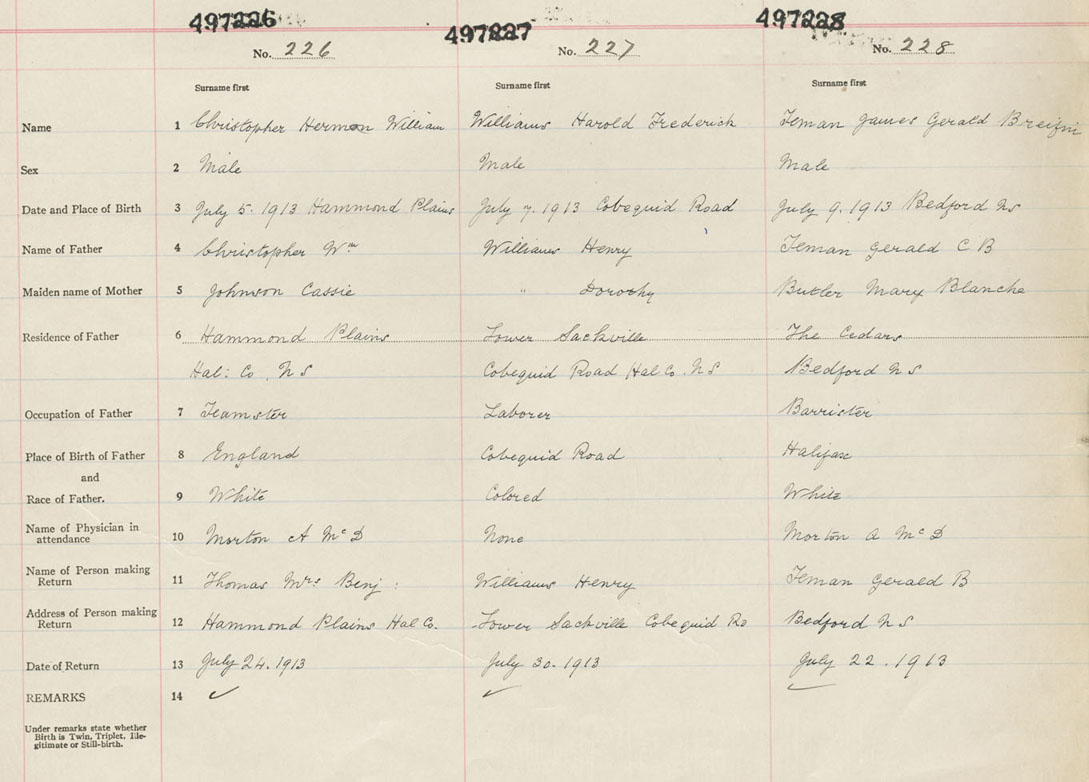 497226 497227 497228
No. 226 No. 227 No. 228
Surname first Surname first Surname first
Name 1 Christopher Hermon William Williams Harold Frederick Teman James Gerald Breifni
Sex 2 Male Male Male
Date and Place of Birth 3 July 5. 1913 Hammond Plains July 7. 1913 Cobequid Road July 9. 1913 Bedford NS
Name of Father 4 Christopher Wm Williams Henry Teman Gerald C B
Maiden name of Mother 5 Johnson Cassie " Dorothy Butler Mary Blanche
Residence of Father 6 Hammond Plains Lower Sackville The Cedars
Hal: Co. N S Cobequid Road Hal Co. N S Bedford N S
Occupation of Father 7 Teamster Laborer Barrister
Place of Birth of Father 8 England Cobequid Road Halifax
and
Race of Father. 9 White Colored White
Name of Physician in
attendance 10 Morton A McD None Morton A McD
Name of Person making
Return 11 Thomas Mrs Benj: Williams Henry Teman Gerald B
Address of Person making
Return 12 Hammond Plains Hal Co. Lower Sackville Cobequid Ro Bedford N S
Date of Return 13 July 24. 1913 July 30. 1913 July 22. 1913
REMARKS 14 ✓ ✓ ✓
Under remarks state whether
Birth is Twin, Triplet, Ille-
gitimate or Still-birth.